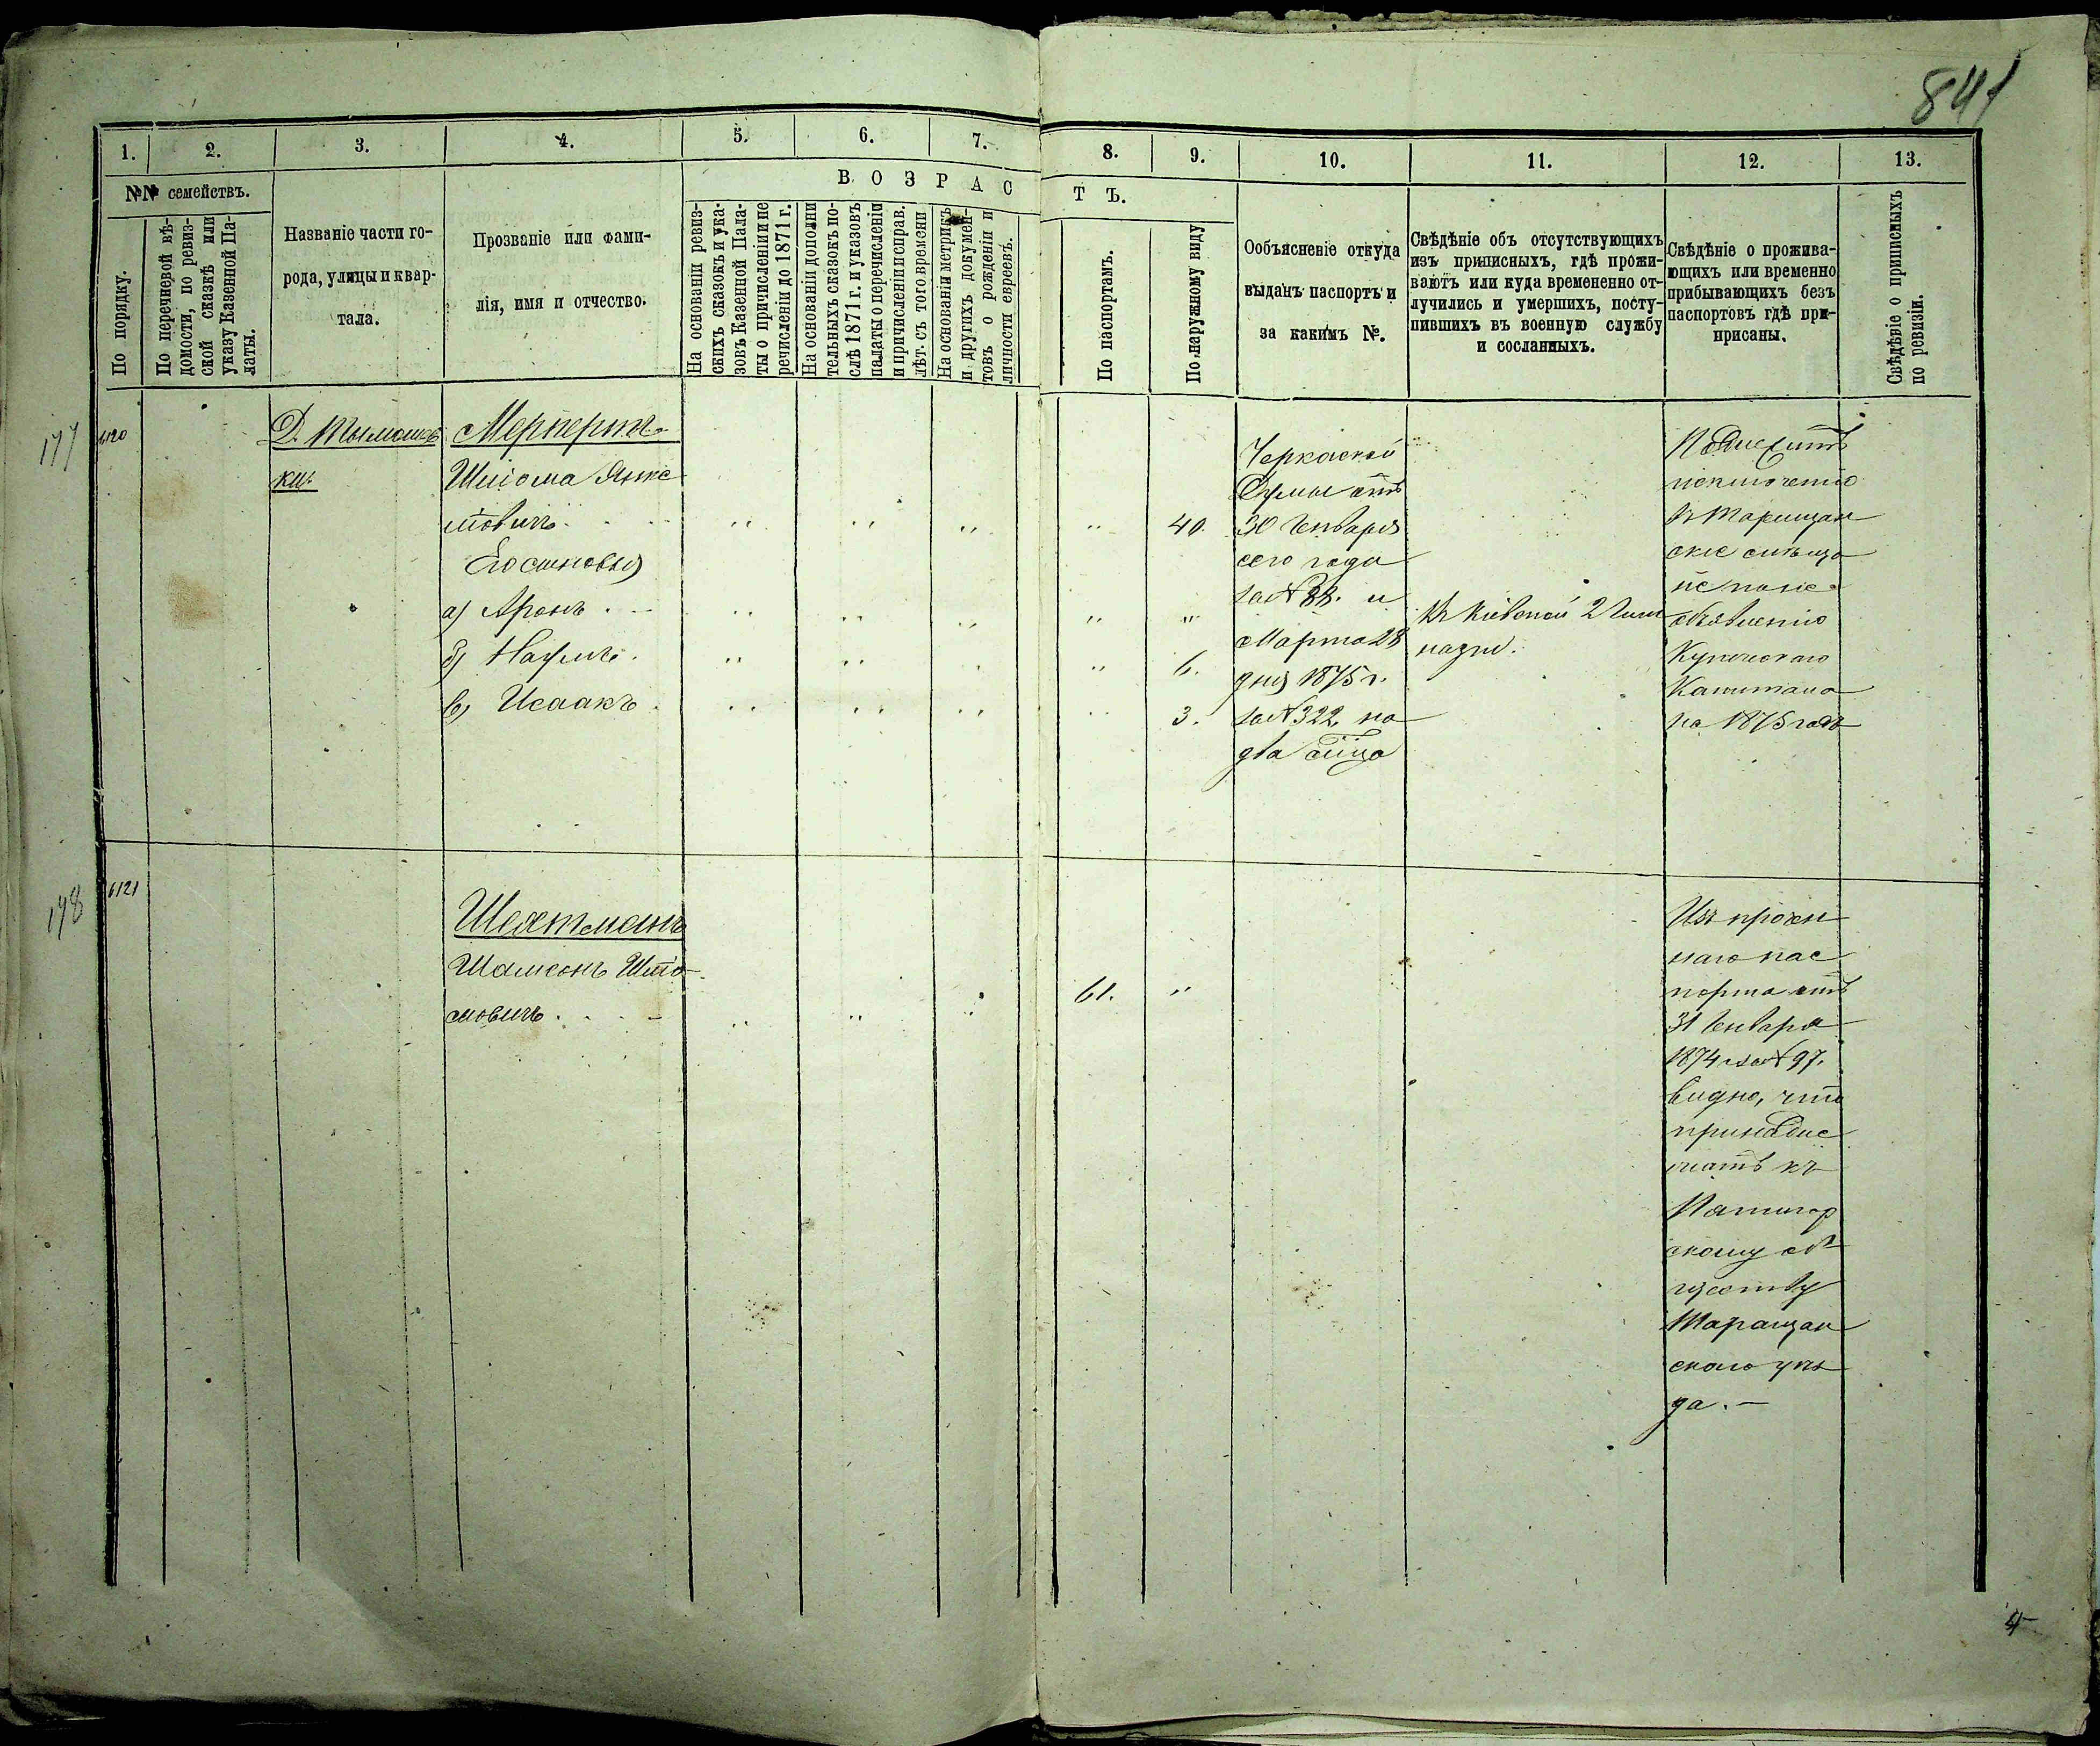 841
1.
2.
3.
4.
5.
6.
7.
8.
9.
10.
11.
12.
13.
№№ семействъ.
По порядку.
По перечневой вѣ-
домости, по ревиз-
ской сказкѣ или
указу Казенной Па-
латы.
Названіе части го-
рода, улицы и квар-
тала.
Прозваніе или фами-
лія, имя и отчество.
ВОЗРАС
ТЪ.
На основаніи ревиз-
скихъ сказокъ и ука-
зовъ Казенной Пала-
ты о причисленіи и пе
речисленіи до 1871 г.
На основаніи дополни
тельныхъ сказокъ по-
слѣ 1871 г. и указовъ
палаты о перечисленіи
и причисленіи исправ.
лѣт. съ того времени
На основаніи метрикъ
и другихъ докумен-
товъ о рожденіи и
личности евреевъ.
По паспортамъ.
По наружному виду
Ообъясненіе откуда
выданъ паспортъ и
за какимъ №.
Свѣдѣніе объ отсутствующихъ
изъ приписныхъ, гдѣ прожи-
ваютъ или куда временено от-
лучились и умершихъ, посту-
пившихъ въ военную службу
и сосланныхъ.
Свѣдѣніе о прожива-
ющихъ или временно
прибывающихъ безъ
паспортовъ гдѣ при-
писаны.
Свѣдѣніе о приписныхъ
по ревизіи.
177
6120
Д. Тымошов
ки
Мерперттъ
Шліома Янке
левичъ
Его сыновья
а) Аронъ
б) Наумъ
в) Исаакъ
40.
"
6.
3.
Черкаской
Думы отъ
30 Генваря
сего года
за № 38. и
Марта 28
дня 1875 г.
за № 322, на
два лица
Въ Кіевской 2 Гим
назіи.
Подлежитъ
исключенію
въ Таращан
ские
объявленію
Купеческаго
Капитала
на 1875 годъ
178
6121
Шехтманъ
Шамсонъ Шліо-
мовичъ
61.
"
Изъ
наго пас
порта отъ
31 Генваря
1874 за № 97.
видно, что
принадле
житъ къ
Пятигор
скому об
ществу
Таращан
скаго уѣз
да.